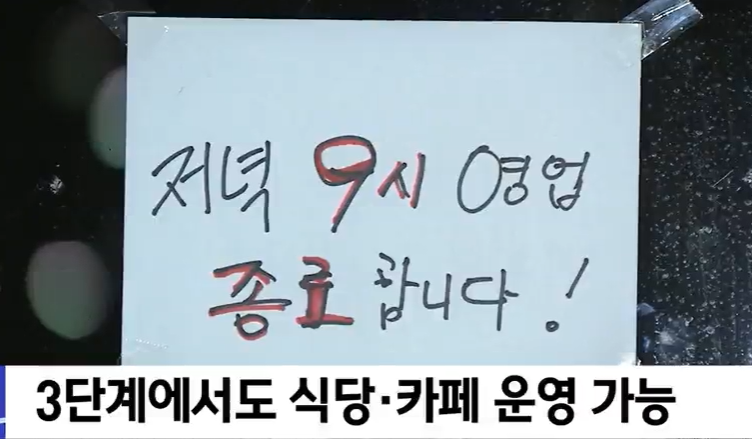 저녁 9시 영업
종료 합니다!
3단계에서도 식당·카페 운영 가능